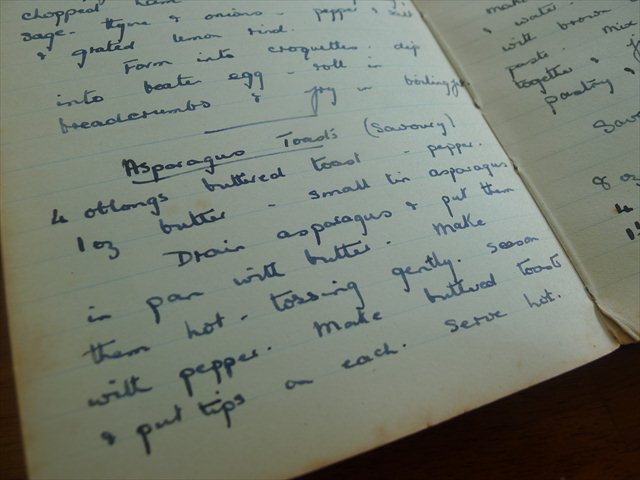 chopped ham
sage - thyme & onions - pepper &
& grated lemon rind.
Form into croquettes. dip
into beaten egg - roll in
breadcrumbs & fry in boiling
Asparagus Toasts (Savoury)
4 oblongs buttered toast - pepper.
1 oz butter - small tin asparagus.
Drain asparagus & put them
in pan with butter. Make
them hot - tossing gently. season
with pepper. Make buttered toast
& put tips on each. Serve hot.
make
& water.
with brown
paste. Mix
together &
pastry &
8 oz
4